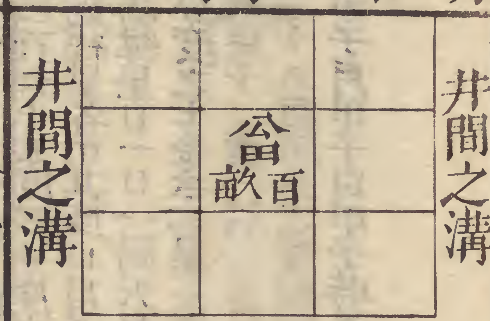 井間之溝
公田
百畝
井間之溝